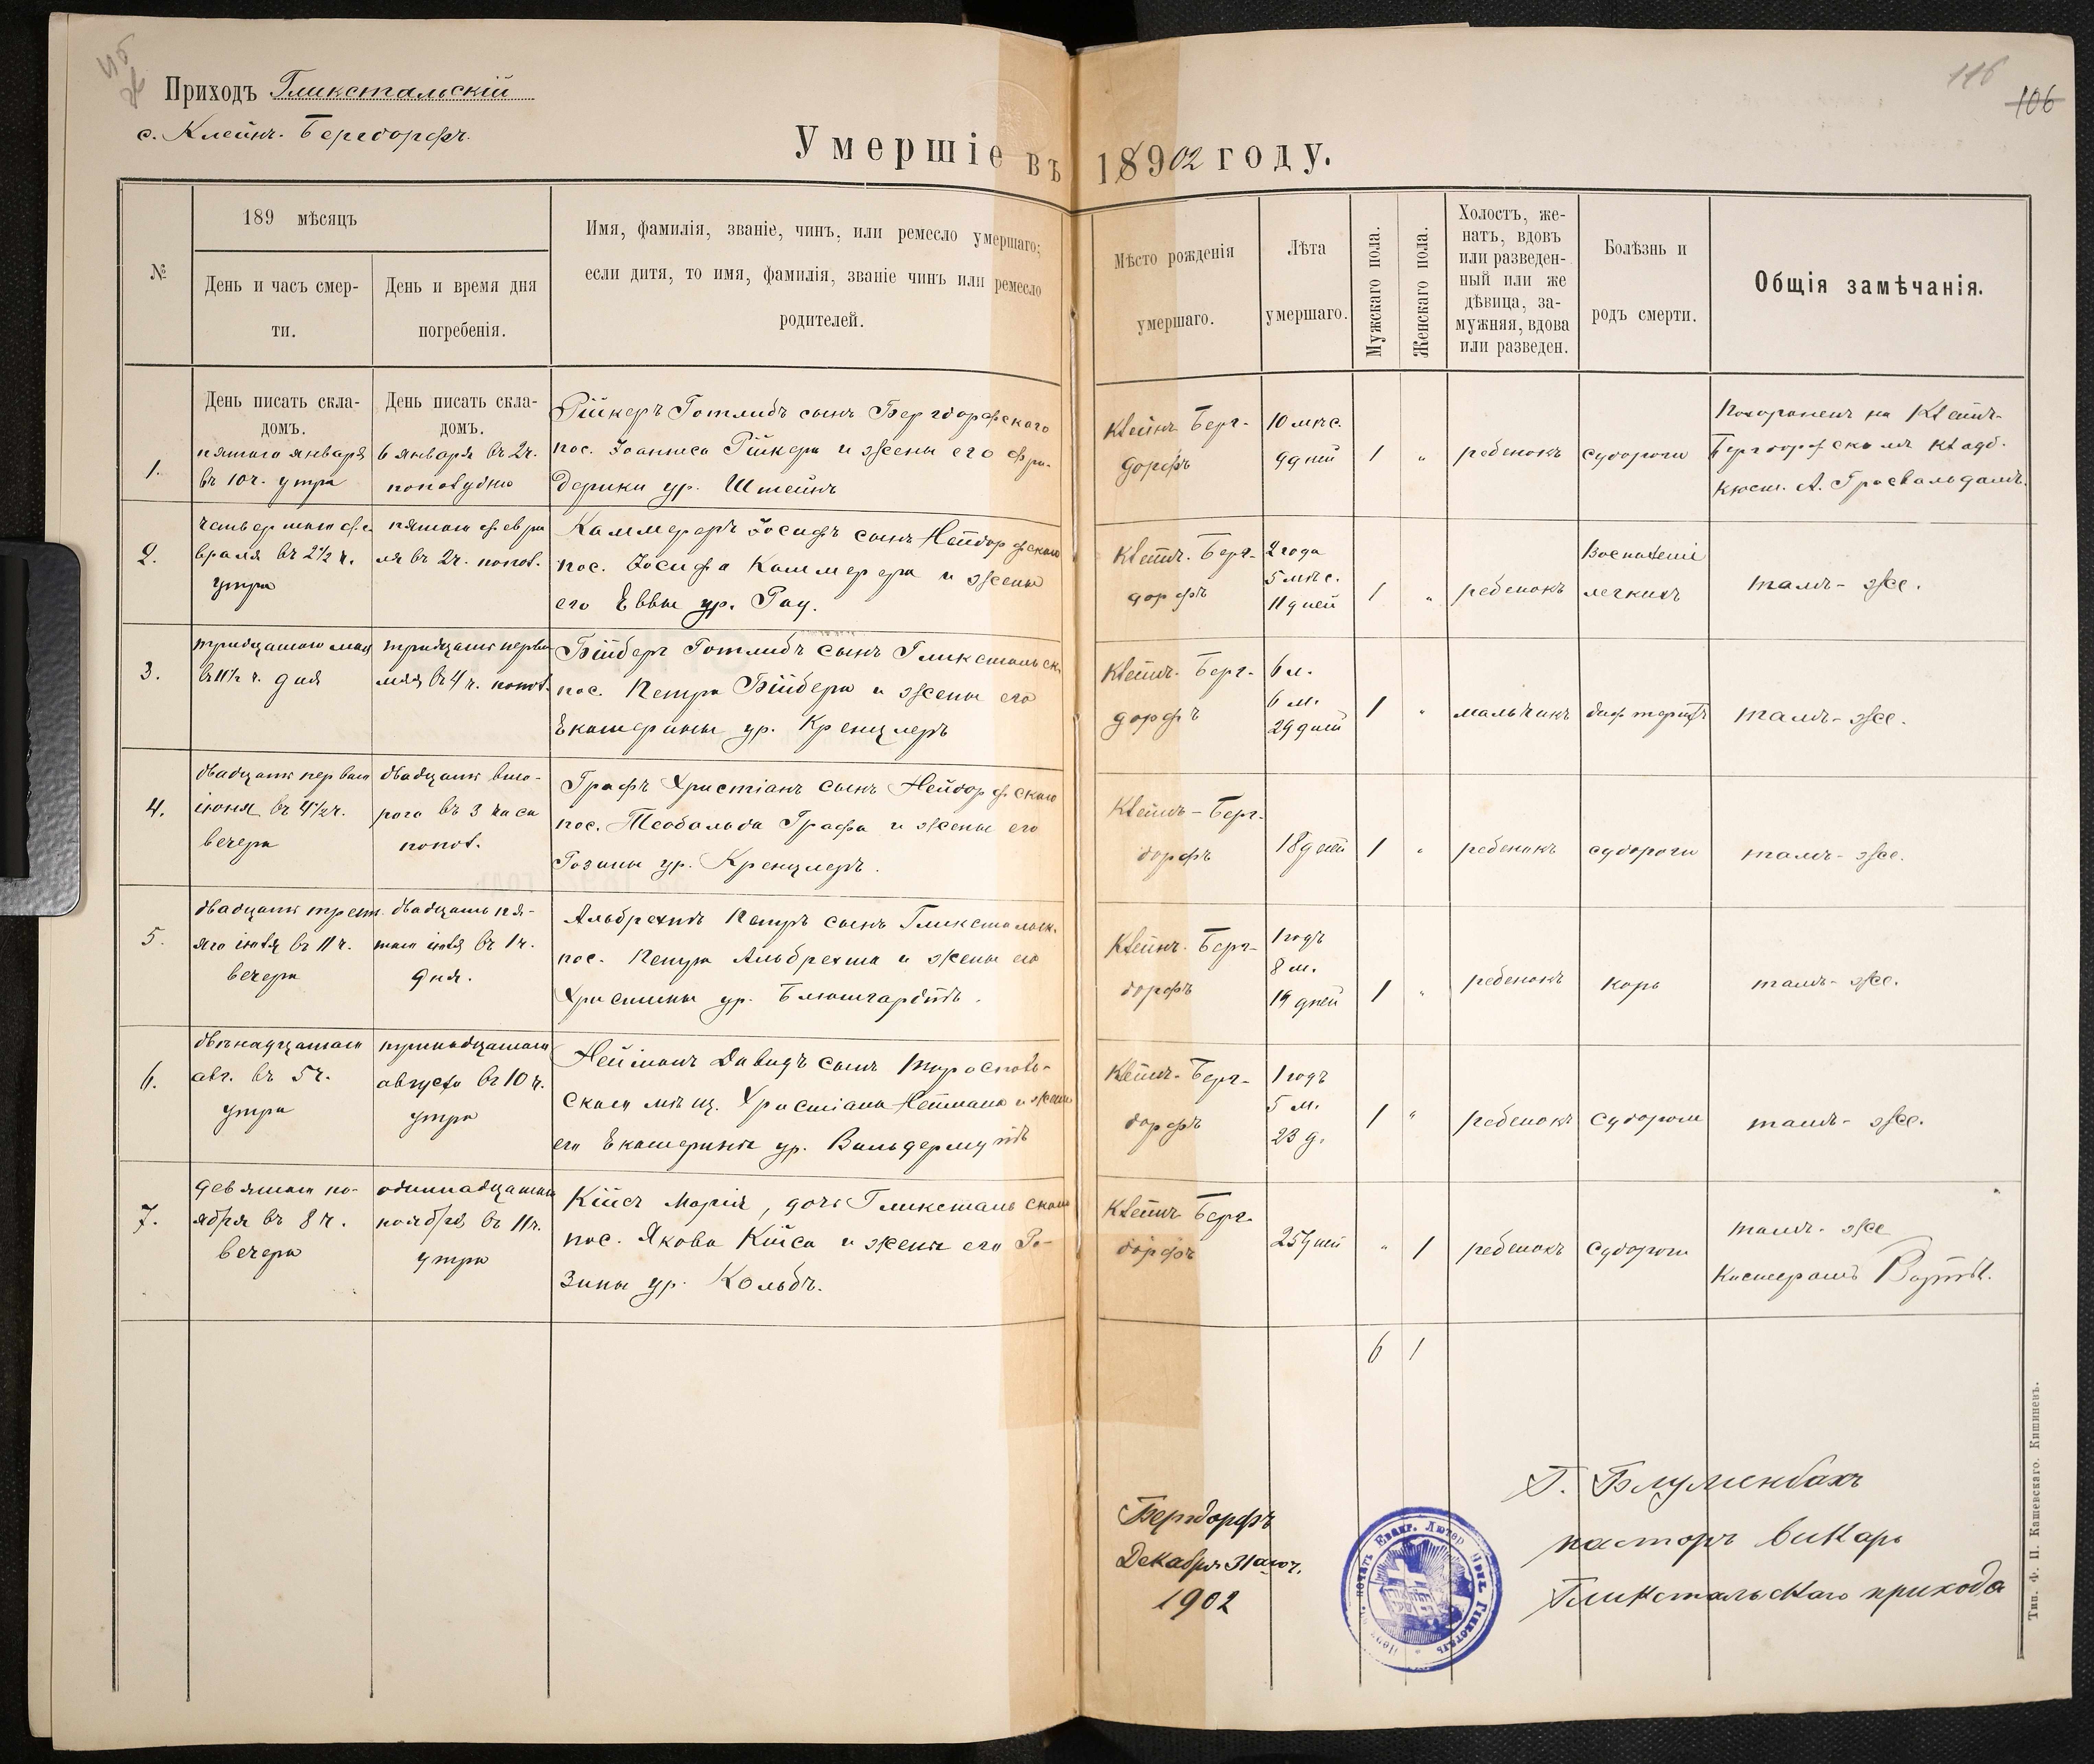 116
106
Приходъ Гликстальскій
с. Клейнъ-Бергдорфъ.
Умершіе въ 18902 году.
№
189 мѣсяцъ
День и часъ смер-
ти.
День и время дня
погребенія.
Имя, фамилія, званіе, чинъ, или ремесло умершаго;
если дитя, то имя, фамилія, званіе чинъ или ремесло
родителей.
Мѣсто рожденія
умершаго.
Лѣта
умершаго.
Мужскаго пола.
Женскаго пола.
Холостъ, же-
натъ, вдовъ
или разведен-
ный или же
дѣвица, за-
мужняя, вдова
или разведен.
Болѣзнь и
родъ смерти.
Общія замѣчанія.
День писать скла-
домъ.
День писать скла-
домъ.
1.
пятаго января
въ 10 ч. утра
6 января въ 2 ч.
пополудню
Рійкеръ Готлибъ сынъ Бергдорфскаго
пос. Іоаннеса Рійкера и жены его Фри-
дерики ур. Штейнъ
Клейнъ Берг-
дорфъ
10 мѣс.
9 дней
1
"
ребенокъ
судороги
Похороненъ на Клейнъ-
Бергдорфскомъ кладб.
кюст. А. Гросвальдомъ.
2.
четвертаго фе-
враля въ 2 1/2 ч.
утра
пятаго февра
ля въ 2 ч. попол.
Каммереръ Іосифъ сынъ Нейдорфскаго
пос. Іосифа Каммерера и жены
его Еввы ур. Рау.
Клейнъ-Берг-
дорфъ
2 года
5 мѣс.
11 дней
1
"
ребенокъ
Воспаленіе
легкихъ
тамъ-же.
3.
тридцатаго мая
въ 11 1/2 ч. дня
тридцать перваго
мая въ 4 ч. попол.
Бійберъ Готлибъ сынъ Гликстальск.
пос. Петра Бійбера и жены его
Екатерины ур. Кренцлеръ
Клейнъ-Берг-
дорфъ
6 л.
6 м.
29 дней
1
"
мальчикъ
дифтеритъ
тамъ-же.
4.
двадцать перваго
іюня въ 4 1/2 ч.
вечера
двадцать вто-
рого въ 3 часа
попол.
Графъ Христіанъ сынъ Нейдорфскаго
пос. Теобальда Графа и жены его
Розины ур. Кренцлеръ.
Клейнъ-Берг-
дорфъ
18 дней
1
"
ребенокъ
судороги
тамъ-же.
5.
двадцать треть-
яго іюля въ 11 ч.
вечера
двадцать пя-
таго іюля въ 1 ч.
дня.
Альбрехтъ Петръ сынъ Гликстальск.
пос. Петра Альбрехта и жены его
Христины ур. Блюмгардтъ.
Клейнъ-Берг-
дорфъ
1 годъ
8 м.
19 дней
1
"
ребенокъ
корь
тамъ-же.
6.
двѣнадцатаго
авг. въ 5 ч.
утра
тринадцатаго
августа въ 10 ч.
утра
Нейманъ Давидъ сынъ Тирасполь-
скаго мѣщ. Христіана Неймана и жены
его Екатерины ур. Вильдермутъ
Клейнъ-Берг-
дорфъ
1 годъ
5 м.
23 д.
1
"
ребенокъ
судороги
тамъ-же.
7.
девятаго но-
ября въ 8 ч.
вечера
одиннадцатаго
ноября въ 11 ч.
утра
Кійсъ Марія, дочь Гликстальскаго
пос. Якова Кійса и жены его Ро-
зины ур. Кольбъ.
Клейнъ Берг-
дорфъ
25 дней
"
1
ребенокъ
судороги
тамъ-же
Кистеромъ
6
1
Бергдорфъ
Декабря 31аго ч.
1902
Г. Блуменбахъ
пасторъ викарь
Гликстальскаго прихода
Тип. Ф. П. Кашевскаго. Кишиневъ.